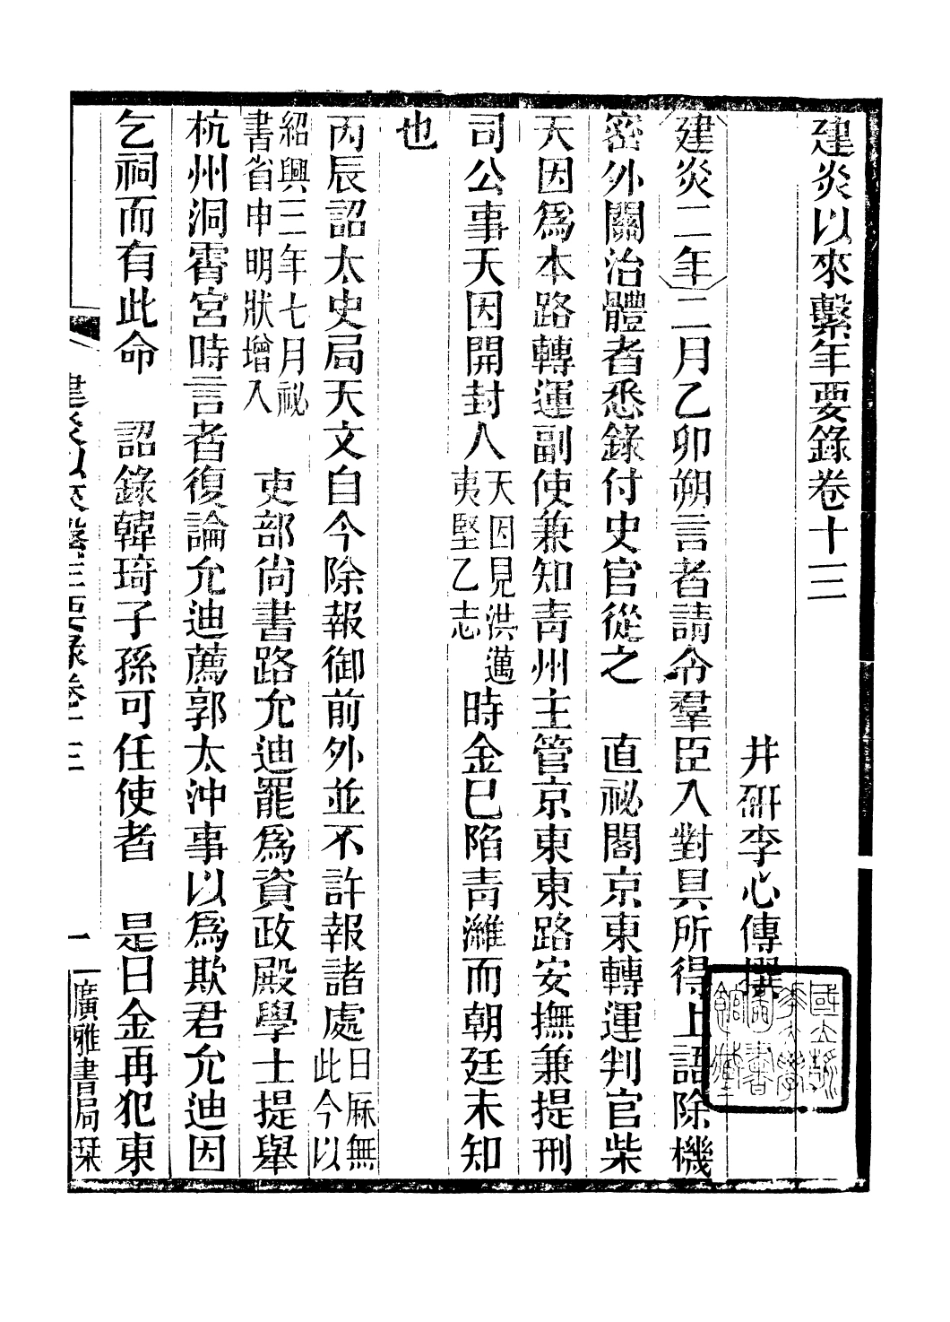 建炎以來繫年要錄卷十三
井研李心傳撰
建炎二年二月乙卯朔言者請令羣臣入對具所得上語除機
密外關治體者悉錄付史官從之　直祕閣京東轉運判官柴
天因爲本路轉運副使兼知靑州主管京東東路安撫兼提刑
司公事天因開封人天因見洪邁夷堅乙志　時金已陷靑濰而朝廷未知
也
丙辰詔太史局天文自今除報御前外並不許報諸處日厤無此今以
紹興三年七月祕書省申明狀增入　吏部尙書路允迪罷爲資政殿學士提舉
杭州洞霄宮時言者復論允迪薦郭太沖事以爲欺君允迪因
乞祠而有此命　詔錄韓琦子孫可任使者　是日金再犯東
建炎以來繫年要錄卷十三　一　廣雅書局栞
國立北平大學圖書館藏